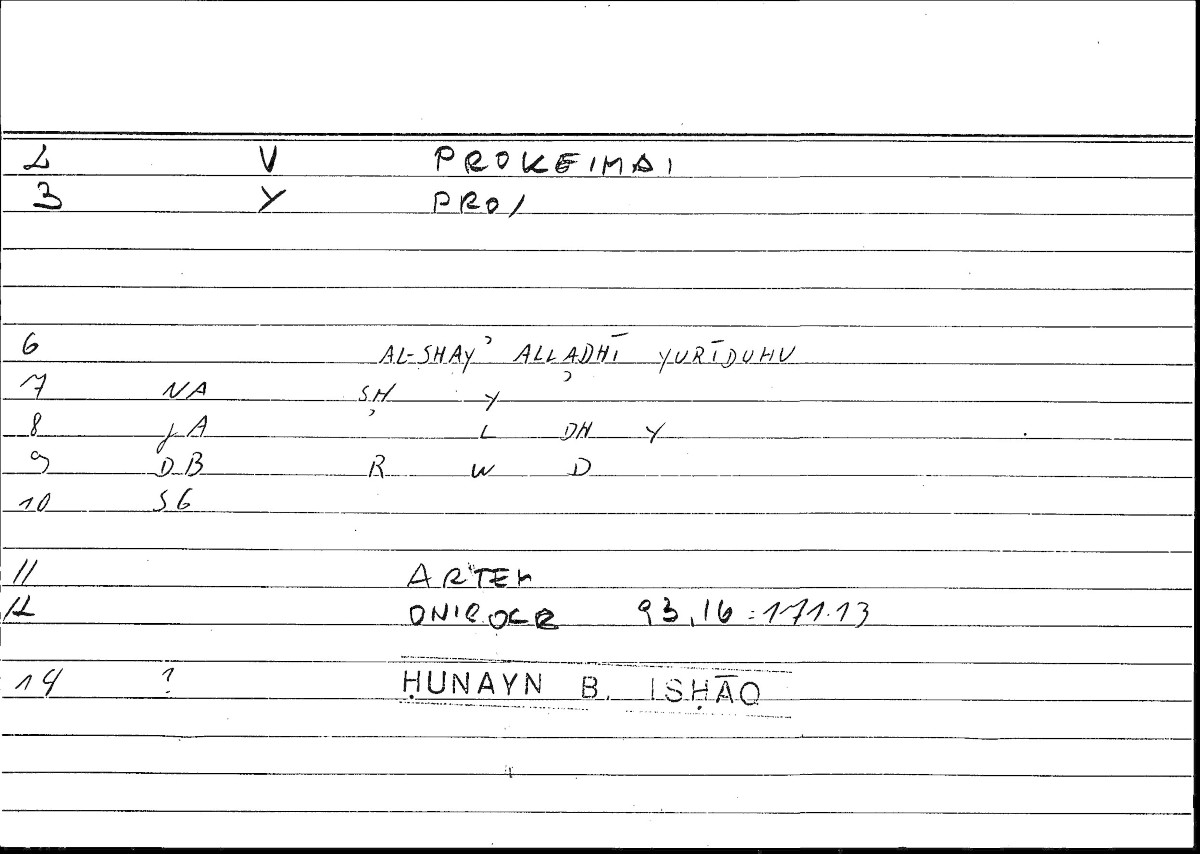 2 V PROKEIMAI
3 Y PRO/
6 AL-SHAYʾ ALLADHĪ YURĪDUHU
7 NA SH Y ʾ
8 JA ʾ L DH Y
9 DB R W D
10 SG
11 ARTEM
12 ONIROCR 93,16 : 171.13
14 ? ḤUNAYN B. ISḤĀQ